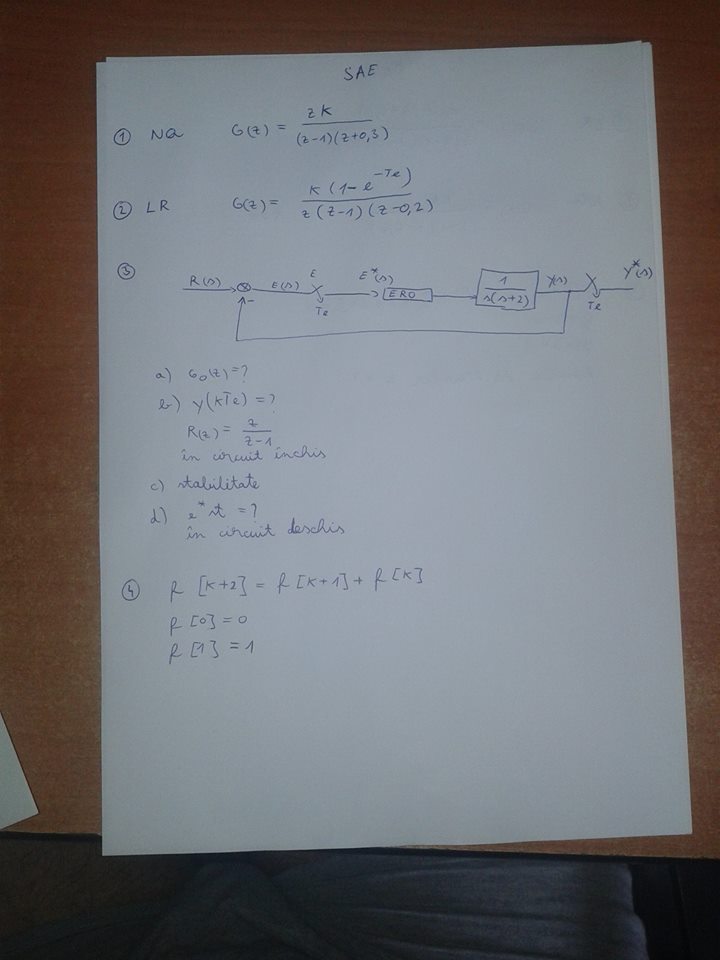 SAE
① NQ G(z) = zK / (z-1)(z+0,3)
② LR G(z) = K(1-e^-Te) / z(z-1)(z-0,2)
③ R(s) - E(s) E Te E*(s) ERO 1 / s(s+2) Y(s) Te Y*(s)
a) G₀(z)=?
b) y(kTe) = ?
R(z) = z / z-1
în circuit închis
c) stabilitate
d) e*st = ?
în circuit deschis
④ f[k+2] = f[k+1] + f[k]
f[0] = 0
f[1] = 1